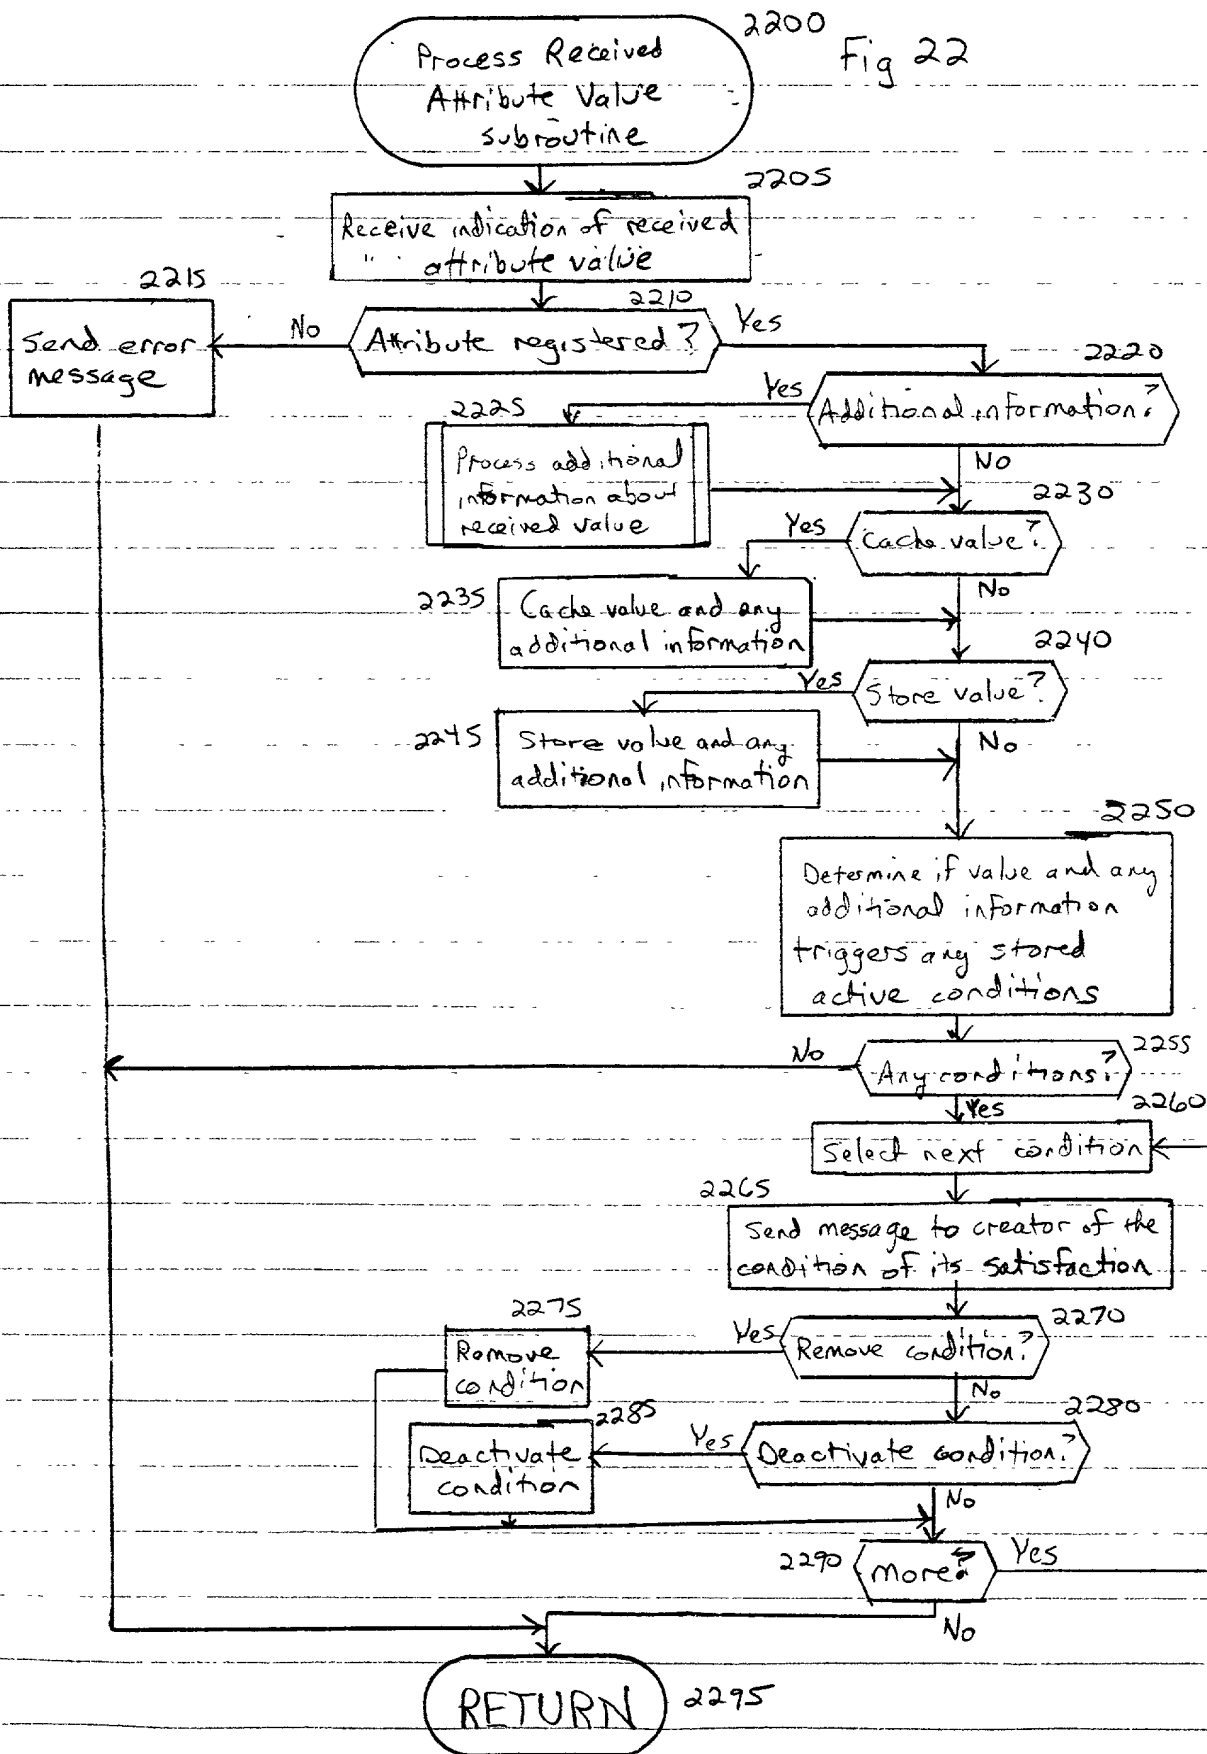 2200
Fig 22
Process Received
Attribute Value
subroutine
2205
Receive indication of received
attribute value
2215
2210
Send error
message
No
Attribute registered?
Yes
2220
Yes
Additional information?
2225
No
Process additional
information about
received value
2230
Yes
Cache value?
No
2235
Cache value and any
additional information
2240
Yes
Store value?
No
2245
Store value and any
additional information
2250
Determine if value and any
additional information
triggers any stored
active conditions
No
Any conditions?
2255
Yes
2260
Select next condition
2265
Send message to creator of the
condition of its satisfaction
2275
2270
Remove
condition
Yes
Remove condition?
No
2285
2280
Deactivate
condition
Yes
Deactivate condition?
No
2290
More?
Yes
No
RETURN
2295